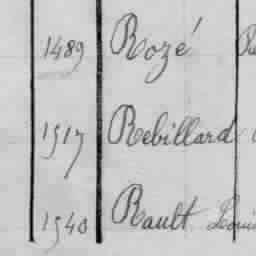 1489 Rozé
1917 Rebillard
1940 Rault Louis